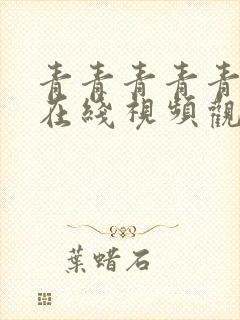 青青青青青
在綫視頻觀
葉蜡石